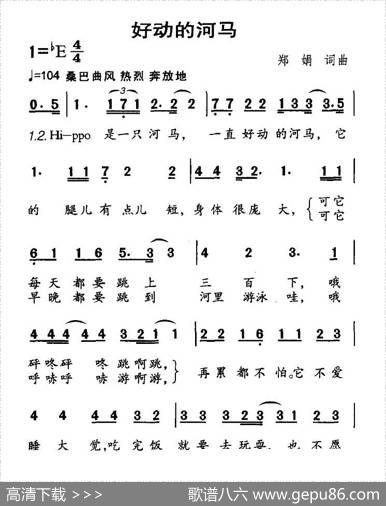 好动的河马
1=♭E 4/4
郑娟 词曲
♩=104 桑巴曲风 热烈 奔放地
0.5 1. 171 2.321 2. 77 22 133 3.5
1.2.Hi-ppo 是一只河马， 一直好动的河马，它
1. 117 2. 12 44 32. 2. 1. 11
的 腿儿有点儿 短，身体很庞大，{可它
可它
6 1 16 5. 3 3 4 2 3. 1
每天都要跳上 三百下，哦
早晚都要跳到 河里游泳哇，哦
44 44 44 321 1 22 16 11 23
砰咚砰 咚跳啊跳，} 再累都不怕。它不爱
呼哧呼 哧游啊游，
4 4 43 23 23 23 31 23
睡大觉，吃完饭就要去玩耍，也不愿
高清下载 >>>
歌谱八六 www.gepu86.com